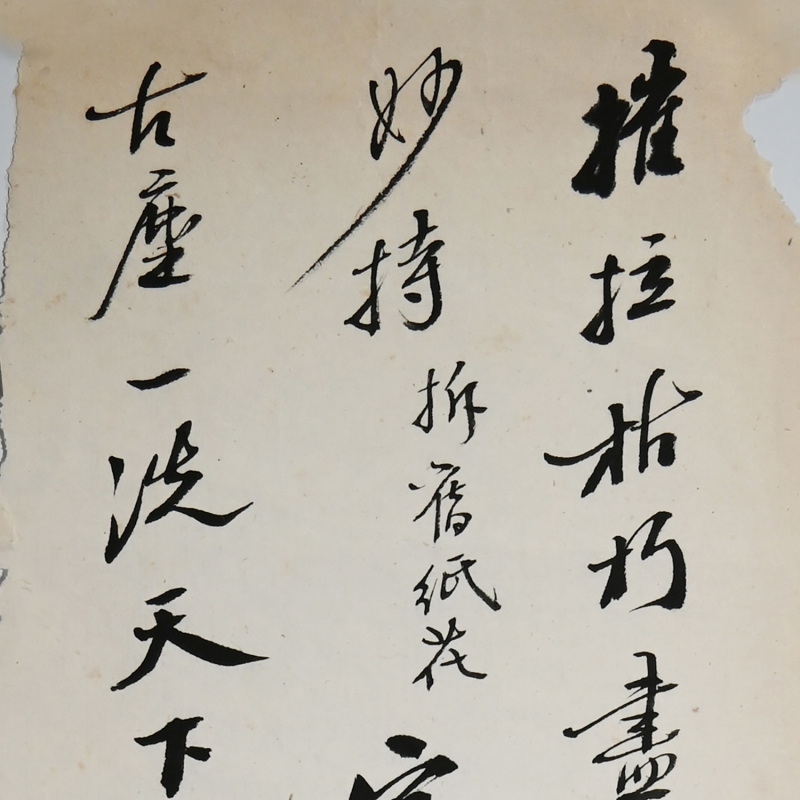 摧拉枯朽盡
妙持
拆舊紙花
古塵一洗天下